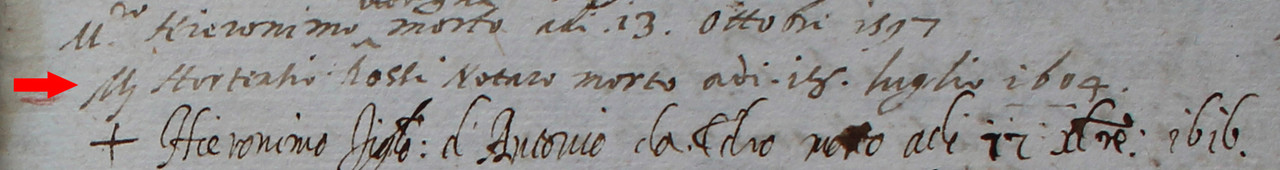 M.ro Hieronimo morto adi .13. Ottobre 1597
M. Hortensio Rossi Notaro morto adi .15. luglio 1604.
+ Hieronimo figlo: d'Antonio da morto adi 17 Xbre: 1616.